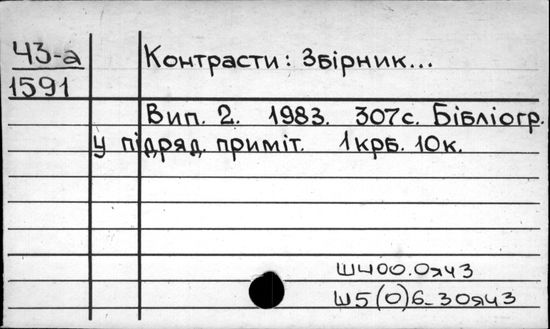 Ч3-а
1591
Контрасти: Збірник...
Вип. 2. 1983. 307с. Бібліогр.
у підряд. приміт. 1крб. 10к.
Ш400.0я43
Ш5(0)6-30я43